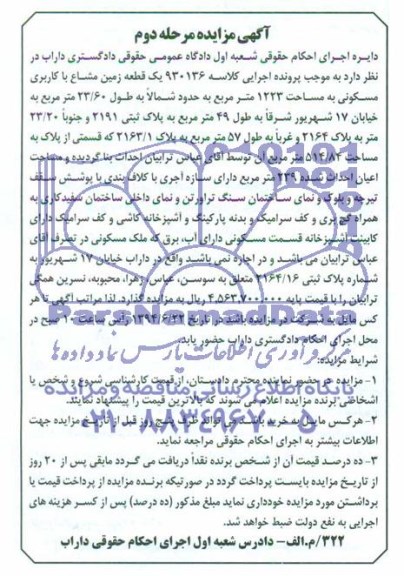 آگهی مزایده مرحله دوم
دایره اجرای احکام حقوقی شعبه اول دادگاه عمومی حقوقی دادگستری داراب در
نظر دارد به موجب پرونده اجرایی کلاسه ۹۳۰۱۳۶ یک قطعه زمین مشاع با کاربری
مسکونی به مساحت ۱۲۲۳ متر مربع به حدود شمالاً به طول ۲۳/۶۰ متر مربع به
خیابان ۱۷ شهریور شرقاً به طول ۴۹ متر مربع به پلاک ثبتی ۲۱۹۱ و جنوباً ۲۳/۲۰
متر به پلاک ۲۱۶۴ و غرباً به طول ۵۷ متر مربع به پلاک ۲۱۶۳/۱ که قسمتی از پلاک به
مساحت ۵۱۴/۸۲ متر مربع آن توسط آقای عباس ترابیان احداث بنا گردیده و مساحت
اعیان احداث شده ۲۳۹ متر مربع دارای سازه آجری با کلاف بندی با پوشش سقف
تیرچه و بلوک و نمای ساختمان سنگ تراورتن و نمای داخلی ساختمان سفیدکاری به
همراه گچ بری و کف سرامیک و بدنه پارکینگ و آشپزخانه کاشی و کف سرامیک دارای
کابینت آشپزخانه قسمت مسکونی دارای آب، برق که ملک مسکونی در تصرف آقای
عباس ترابیان می باشد و در اجاره نمی باشد واقع در داراب خیابان ۱۷ شهریور به
شماره پلاک ثبتی ۲۱۶۴/۱۶ متعلق به سوسن، عباس، زهرا، محبوبه، نسرین همگی
ترابیان را با قیمت پایه ۴.۵۶۳.۷۰۰.۰۰۰ ریال به مزایده گذارد. لذا مراتب آگهی تا هر
کس مایل به شرکت در مزایده باشد در تاریخ ۱۳۹۴/۶/۲۲ راس ساعت ۱۰ صبح در
محل اجرای احکام دادگستری داراب حضور یابد.
شرایط مزایده:
۱- مزایده در حضور نماینده محترم دادستان، از قیمت کارشناسی شروع و شخص یا
اشخاصی برنده مزایده اعلام می شوند که بالاترین قیمت را پیشنهاد نمایند.
۲- هر کس مایل به خرید باشد، می تواند ظرف پنج روز قبل از تاریخ مزایده جهت
اطلاعات بیشتر به اجرای احکام حقوقی مراجعه نماید.
۳- ده درصد قیمت آن از شخص برنده نقداً دریافت می گردد مابقی پس از ۲۰ روز
از تاریخ مزایده بایست پرداخت گردد در صورتیکه برنده مزایده از پرداخت قیمت یا
برداشتن مورد مزایده خودداری نماید مبلغ مذکور (ده درصد) پس از کسر هزینه های
اجرایی به نفع دولت ضبط خواهد شد.
۳۲۲/م.الف- دادرس شعبه اول اجرای احکام حقوقی داراب
ParsNamadData
فرآوری اطلاعات پارس نماد داده ها
پایگاه اطلاع رسانی مناقصه و مزایده
۰۲۱-۸۸۳۴۹۶۷۰-۵